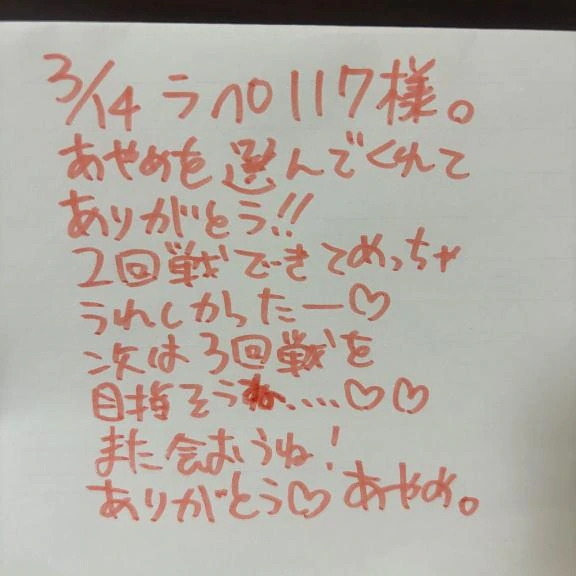 3/14 ラペ117様。
あやめを選んでくれて
ありがとう!!
2回戦できてめっちゃ
うれしかったー♡
次は3回戦を
目指そうね....♡♡
また会おうね!
ありがとう♡あやめ。